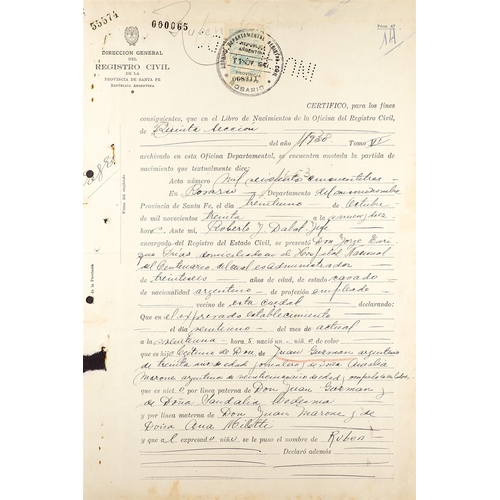 55574
000065
Ruben
14
DIRECCION GENERAL
DEL
REGISTRO CIVIL
DE LA
PROVINCIA DE SANTA FE
REPÚBLICA ARGENTINA
ROSARIO
CERTIFICO, para los fines
consiguientes, que en el Libro de Nacimientos de la Oficina del Registro Civil,
de Quinta Seccion
del año 1930 Tomo VI
archivado en esta Oficina Departamental, se encuentra anotada la partida de
nacimiento que textualmente dice:
Acta número Mil
En Rosario Departamento del mismo nombre
Provincia de Santa Fe, el día treintiuno de Octubre
de mil novecientos treinta a la
hora Ante mi, Roberto J. Dabat Jefe
encargado del Registro del Estado Civil, se presentó Don Jorge Enri
que Frias domiciliado en el Hospital Nacional
del Centenario del cual es administrador
de treintiseis años de edad, de estado casado
de nacionalidad argentino de profesión empleado
vecino de esta ciudad declarando:
Que en el expresado establecimiento
el día veintiuno del mes de actual
a la veintiuna hora s nació un niño de color
que es hijo legitimo de Don Juan Guzman argentino
de treinta años de edad, jornalero y de Doña Analia
Marone argentina de años de edad
que es nieto por línea paterna de Don Juan Guzman y
de Doña Sandalia Ledesma
y por línea materna de Don Juan Marone y de
Doña Ana Miletti
y que al expresado niño se le puso el nombre de Ruben
Declaró además